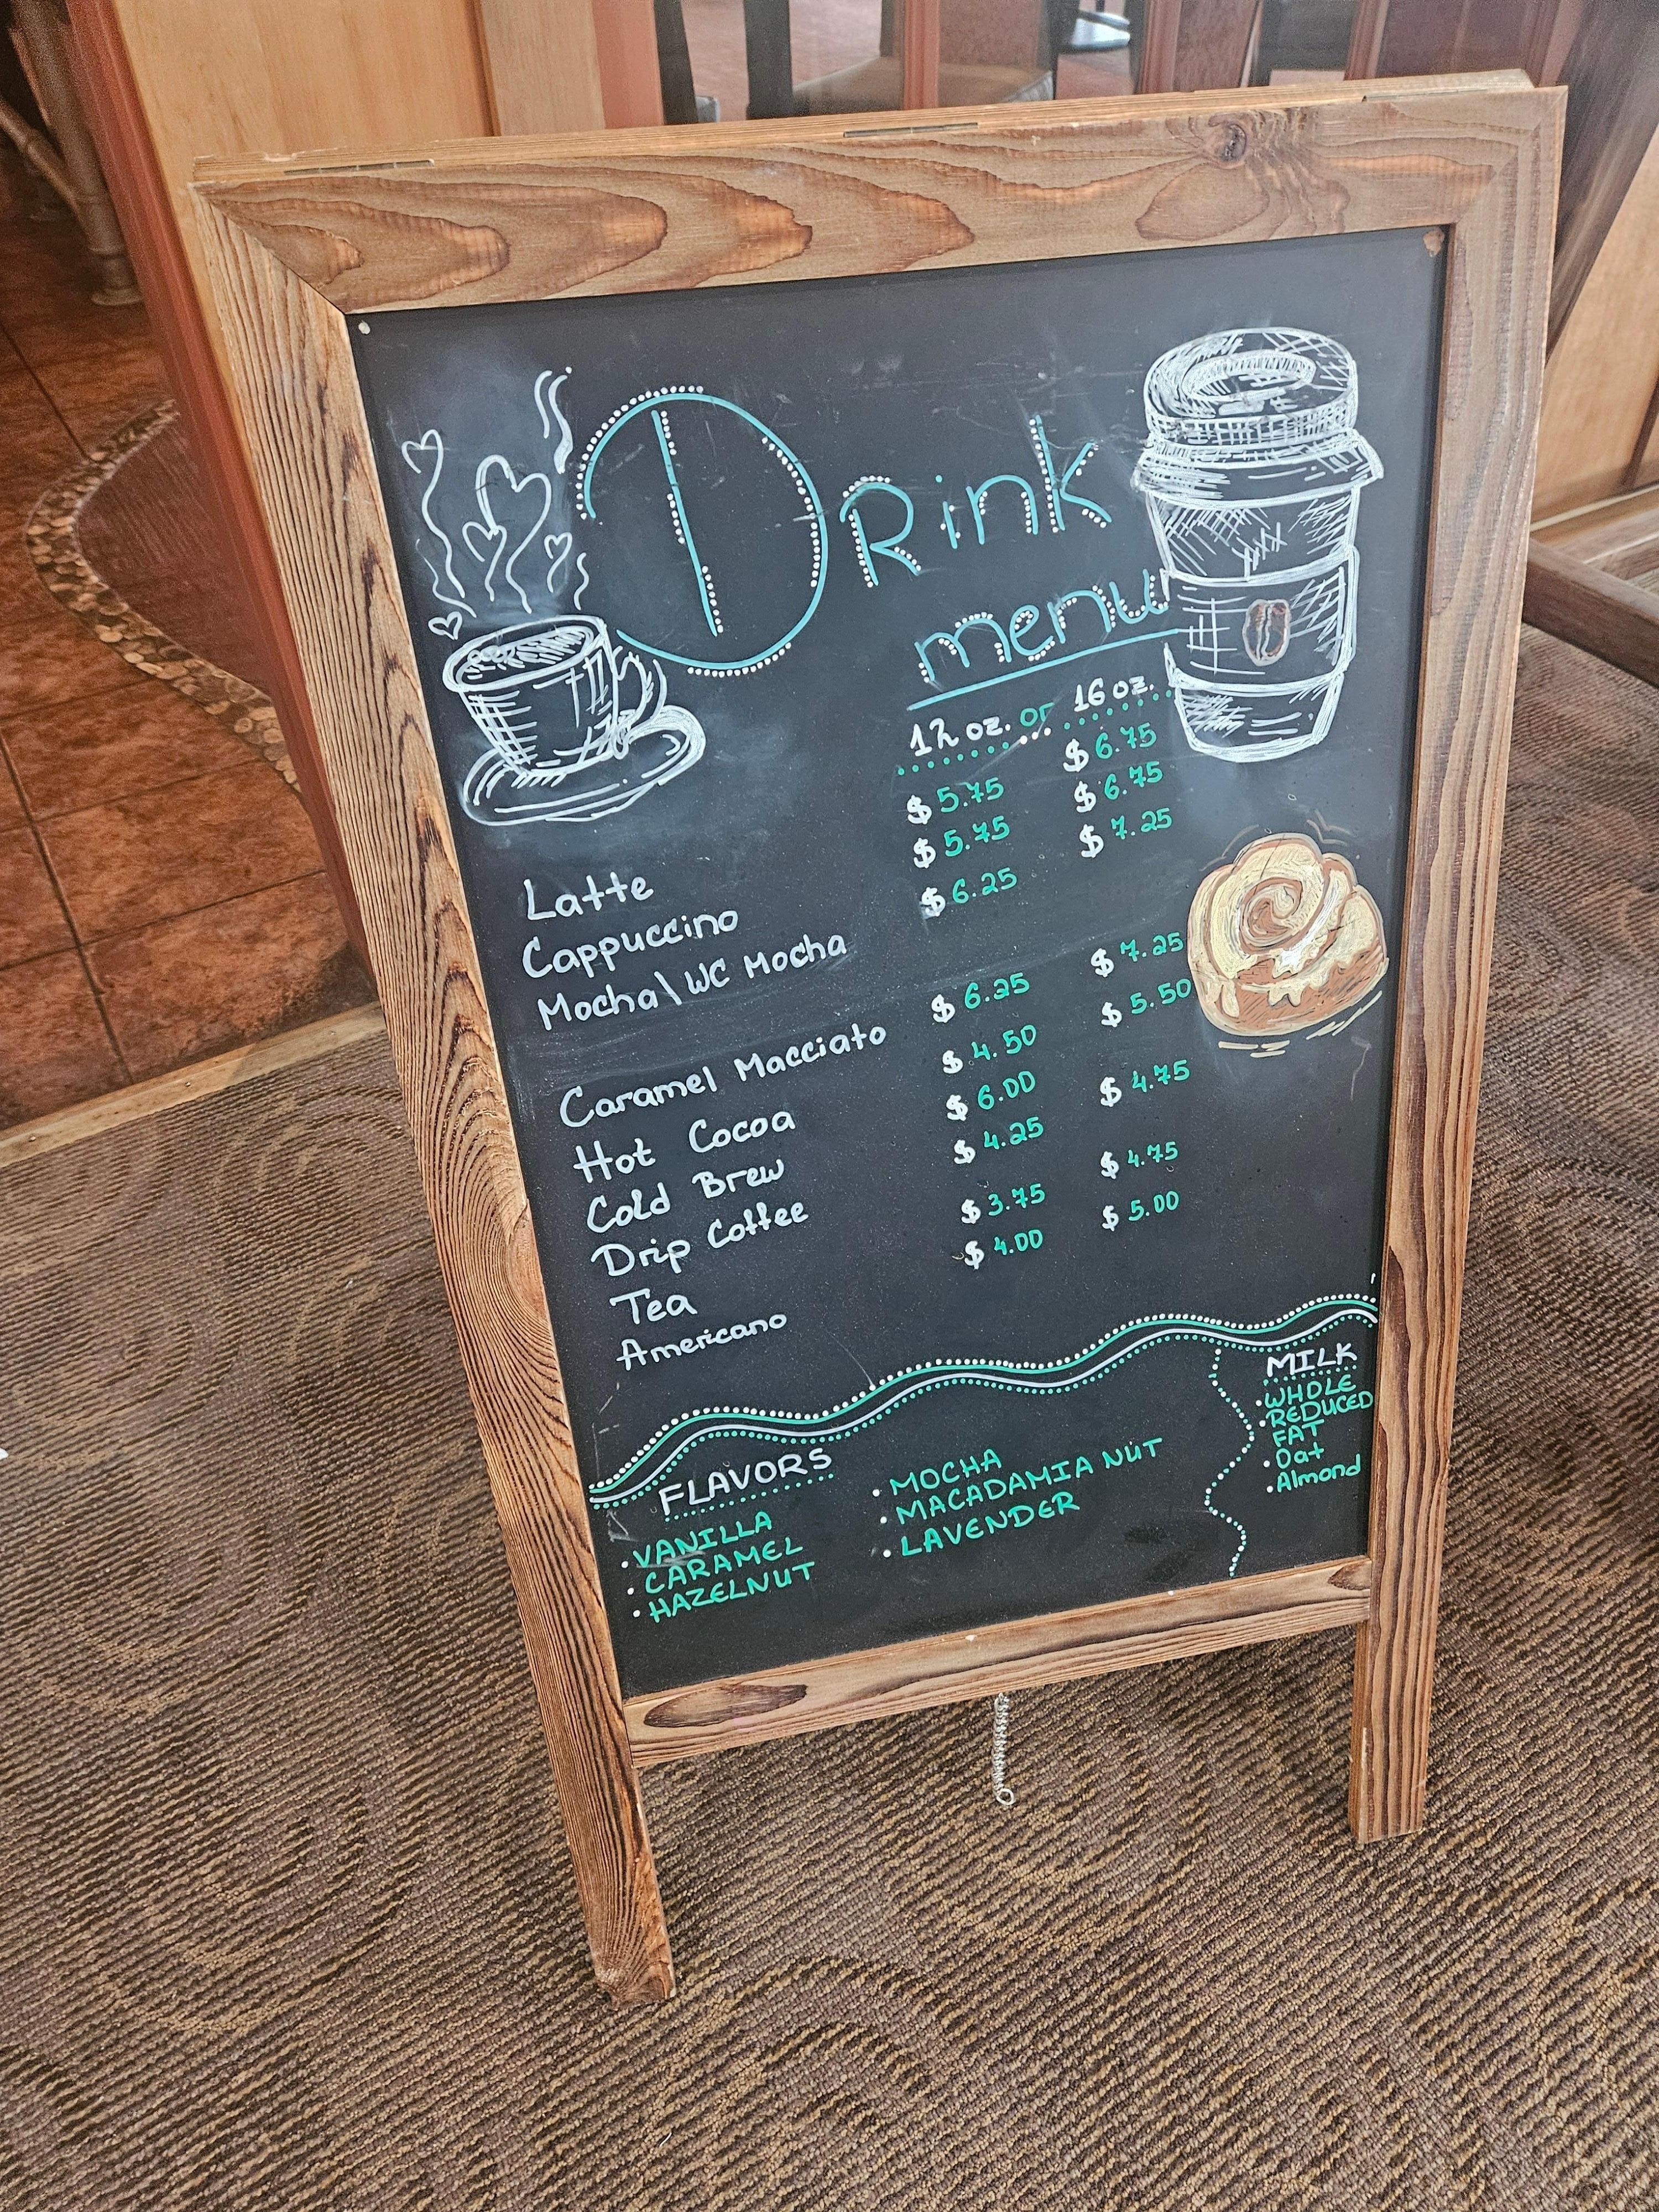 Drink
menu
12 oz. or 16 oz.
Latte $ 5.75 $ 6.75
Cappuccino $ 5.75 $ 6.75
Mocha\WC Mocha $ 6.25 $ 7.25
Caramel Macciato $ 6.25 $ 7.25
Hot Cocoa $ 4.50 $ 5.50
Cold Brew $ 6.00
Drip Coffee $ 4.25 $ 4.75
Tea $ 3.75 $ 4.75
Americano $ 4.00 $ 5.00
FLAVORS
• VANILLA
• CARAMEL
• HAZELNUT
• MOCHA
• MACADAMIA NUT
• LAVENDER
MILK
• WHOLE
• REDUCED
FAT
• Oat
• Almond